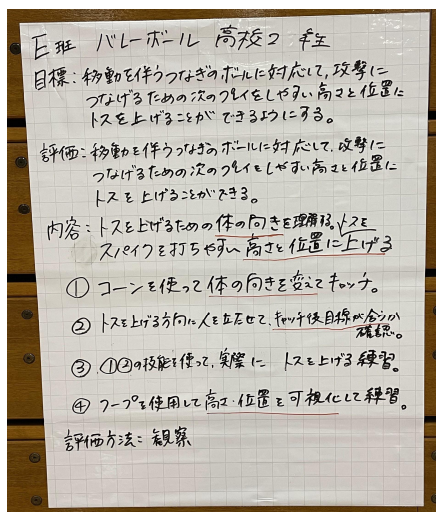 E班 バレーボール 高校2年生
目標：移動を伴うつなぎのボールに対応して,攻撃に
つなげるための次のプレイをしやすい高さと位置に
トスを上げることができるようにする。
評価：移動を伴うつなぎのボールに対応して,攻撃に
つなげるための次のプレイをしやすい高さと位置に
トスを上げることができる。
内容：トスを上げるための体の向きを理解する。トスを
スパイクを打ちやすい高さと位置に上げる
① コーンを使って体の向きを変えてキャッチ。
② トスを上げる方向に人を立たせて,キャッチ後目線が合うか
確認。
③ ①②の技能を使って,実際に トスを上げる練習。
④ フープを使用して高さ・位置を可視化して練習。
評価方法：観察